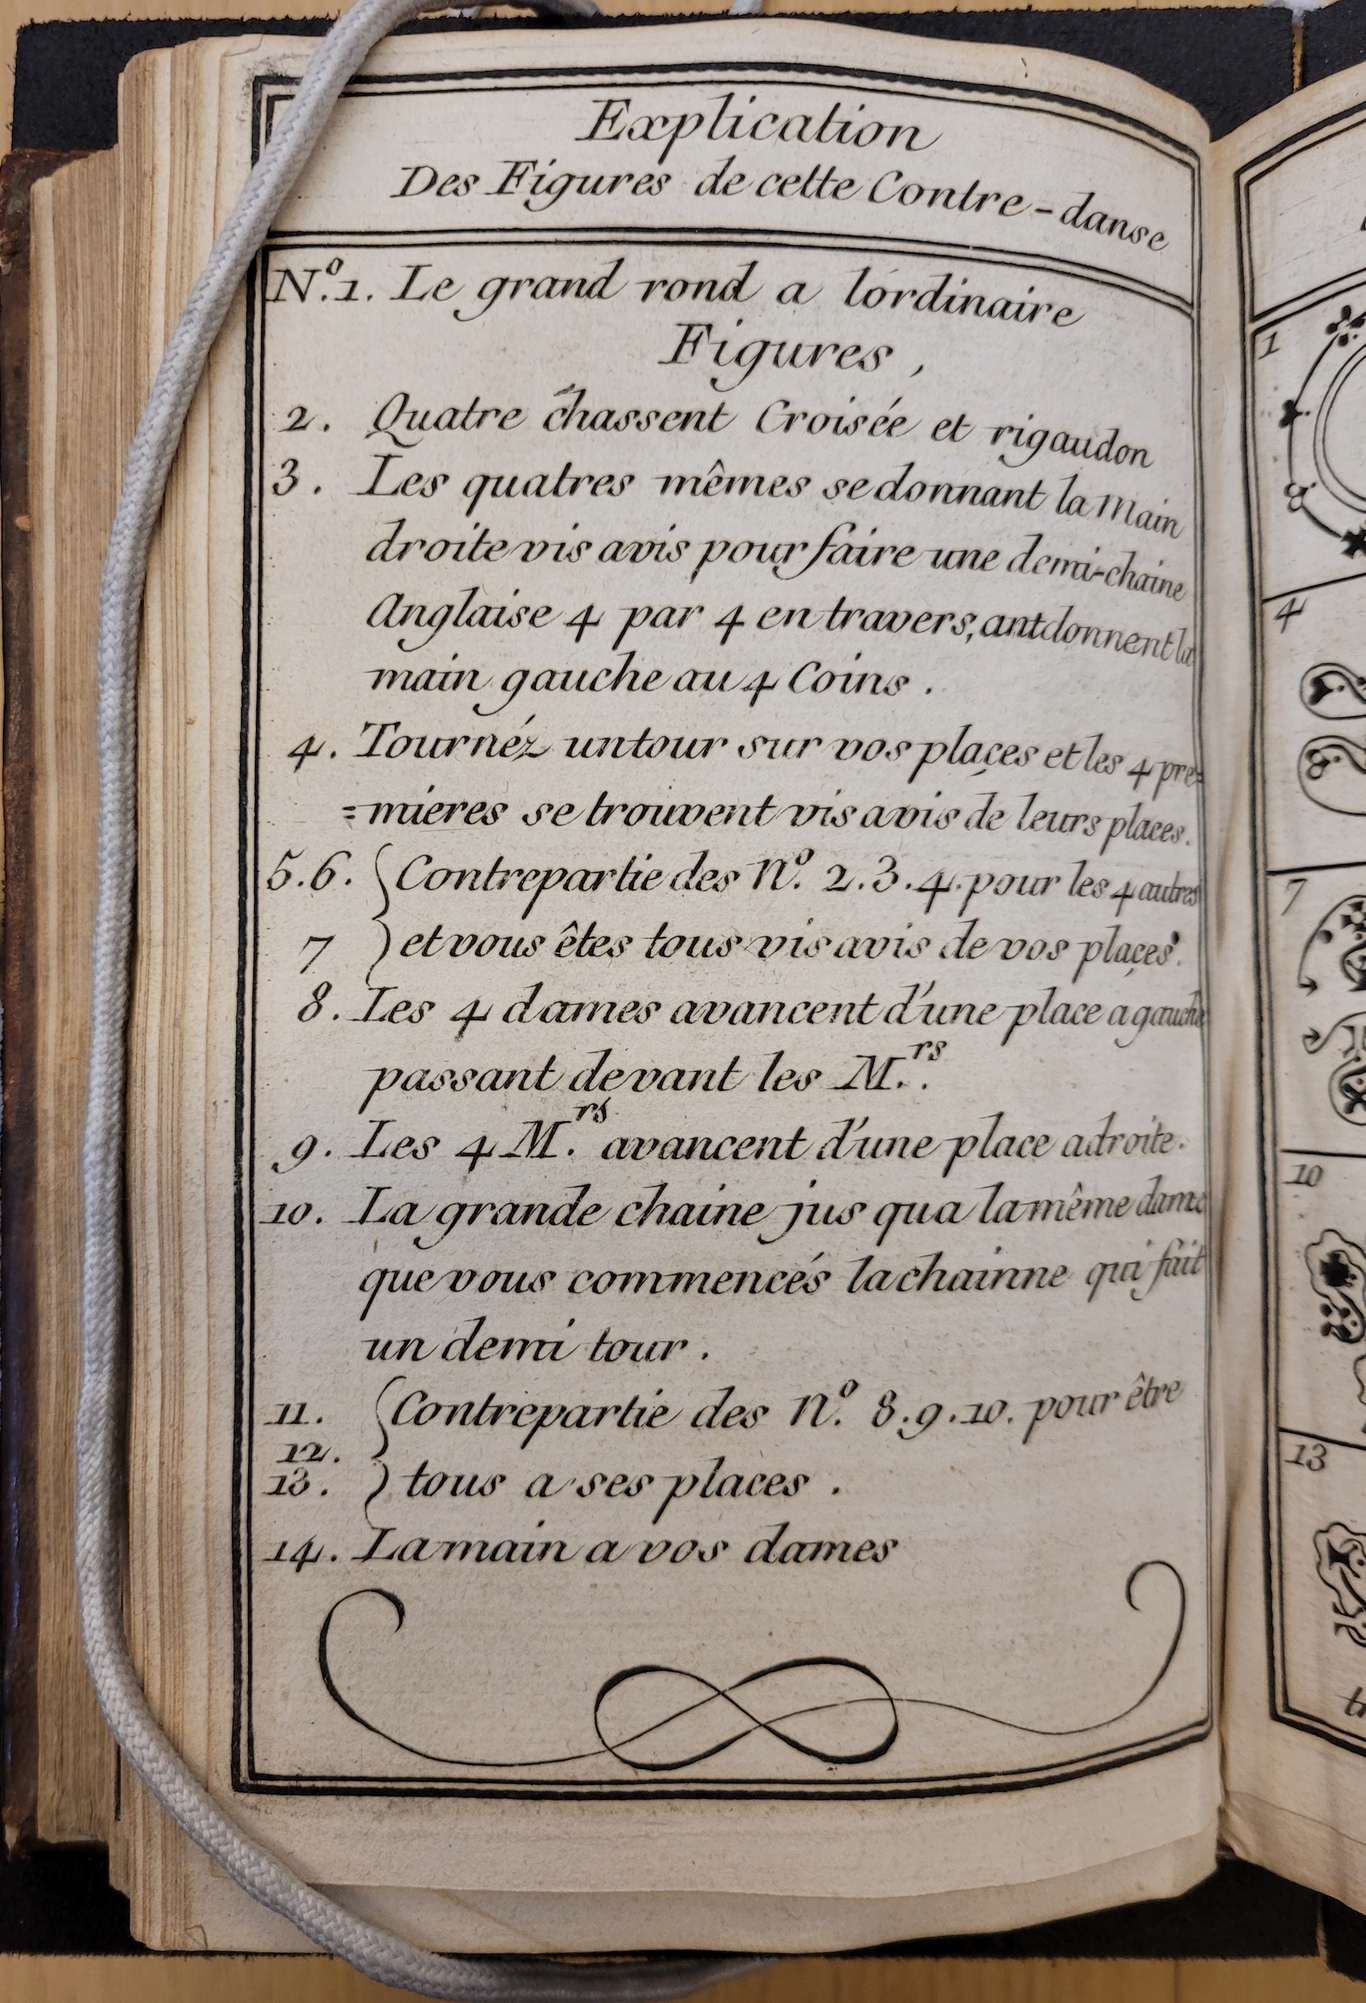 Explication
Des Figures de cette Contre-danse
N.º1. Le grand rond a lordinaire
Figures,
2. Quatre chassent Croisée et rigaudon
3. Les quatres mêmes se donnant la Main
droite vis avis pour faire une demi-chaine
Anglaise 4 par 4 en travers, ant donnent la
main gauche au 4 Coins.
4. Tournéz untour sur vos places et les 4 pre=
=mieres se trouvent vis avis de leurs places.
5.6. Contrepartie des Nº. 2.3.4. pour les 4 autres
7 et vous êtes tous vis avis de vos places.
8. Les 4 dames avancent d'une place a gauche
passant devant les M.rs.
9. Les 4 M.rs avancent d'une place adroite.
10. La grande chaine jus qua la même dame
que vous commencés la chainne qui fait
un demi tour.
11. Contrepartie des Nº. 8.9.10. pour être
12.
13. tous a ses places.
14. La main a vos dames
1
4
7
10
13